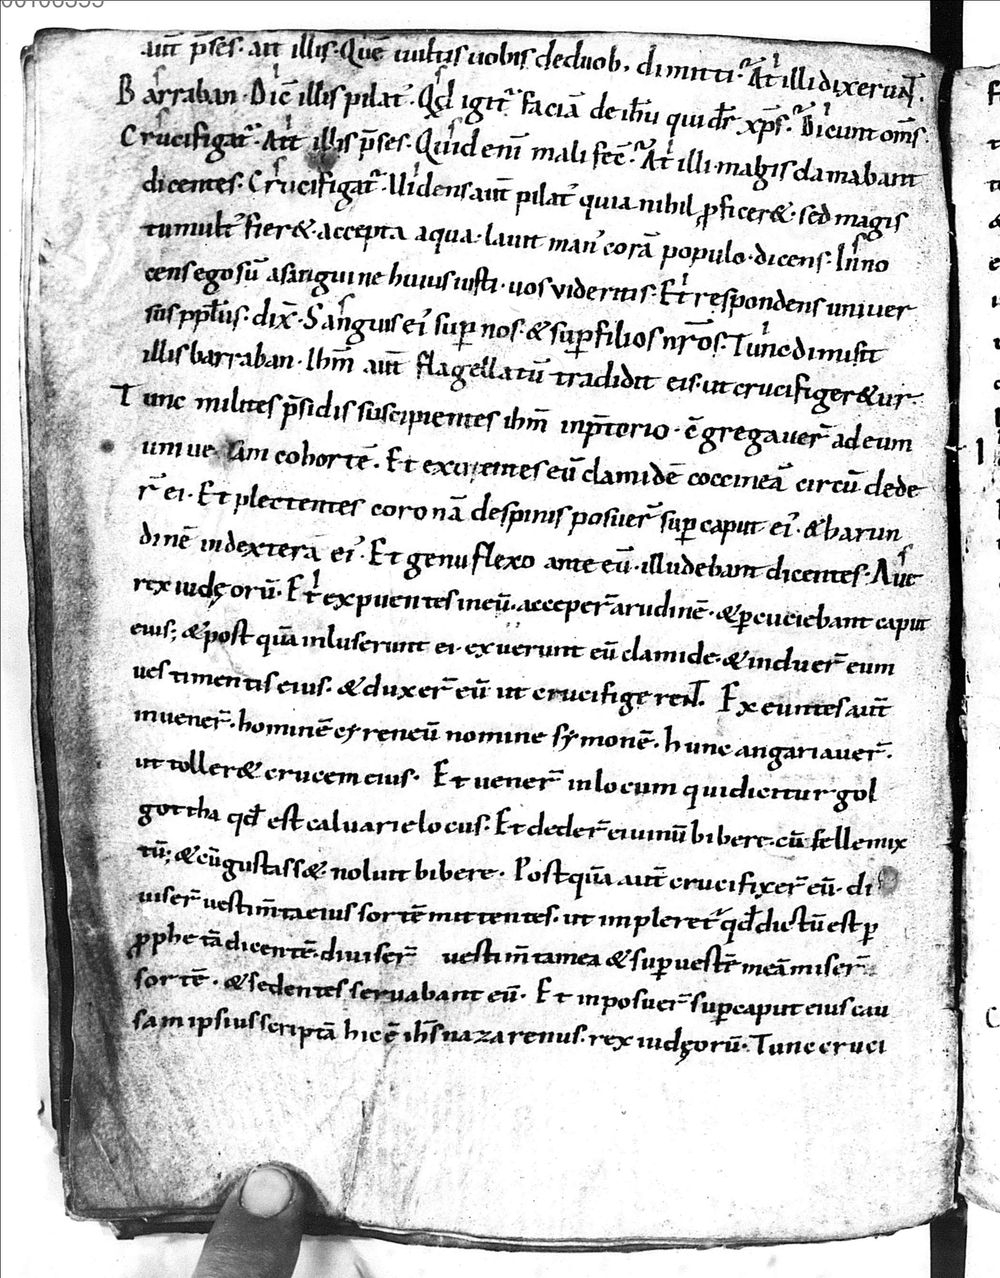 aūt p̄ses· ait illis· Quē uultis uobis de duob, dimitti· At illi dixerunt·
Barraban· Dic̄ illis pilat᷒· Qd igit᷒ faciā de ihū qui dr̄ xp̄s· Dicunt om̄s·
Crucifigat᷒· Ait illis p̄ses· Quid enī mali fec̄· At illi magis clamabant
dicentes· Crucifigat᷒· Uidens aūt pilat᷒ quia nihil ꝓficer&· sed magis
tumult᷒ fier&· accepta aqua· lauit man᷒ corā populo· dicens· Inno
cens ego sū a sanguine huius iusti· uos videritis· Et respondens uniuer
sus pp̄lus· dix̄· Sanguis ei᷒ sup nos· & sup filios nr̄os· Tunc dimisit
illis barraban· Ihm̄ aūt flagellatū tradidit eis· ut crucifiger&ur·
Tunc milites p̄sidis suscipientes ihm̄ inp̄torio· c̄gregauer̄ ad eum
uniuersam cohortē· Et exuentes eū clamidē coccineā circū dede
r̄ ei· Et plectentes coronā de spinis posuer̄ sup caput ei᷒· & harun
dinē in dextera ei᷒· Et genu flexo ante eū· illudebant dicentes· Aue
rex iudęorū· Et expuentes in eū· acceper̄ arudinē· & ꝑcuciebant caput
eius; & post quā inluserunt ei· exuerunt eū clamide· & induer̄ eum
uestimentis eius· & duxer̄ eū ut crucifigerent· Exeuntes aūt
inuener̄· hominē cyreneū nomine symonē· hunc angariauer̄·
ut toller& crucem eius· Et uener̄ in locum qui dicitur gol
gottha qd̄ est caluarie locus· Et deder̄ ei uinū bibere· cū felle mix
tū; & cū gustass&· noluit bibere· Postquā aūt crucifixer̄ eū· di
uiser̄ uestim̄ta eius sortē mittentes· ut impleret᷒ qd̄ dictū est p
ꝓphetā dicentē· diuiser̄ uestim̄ta mea & sup uestē meā miser̄
sortē· & sedentes seruabant eū· Et inposuer̄ sup caput eius cau
sam ipsius scriptā hic ē ihs̄ nazarenus· rex iudęorū· Tunc cruci